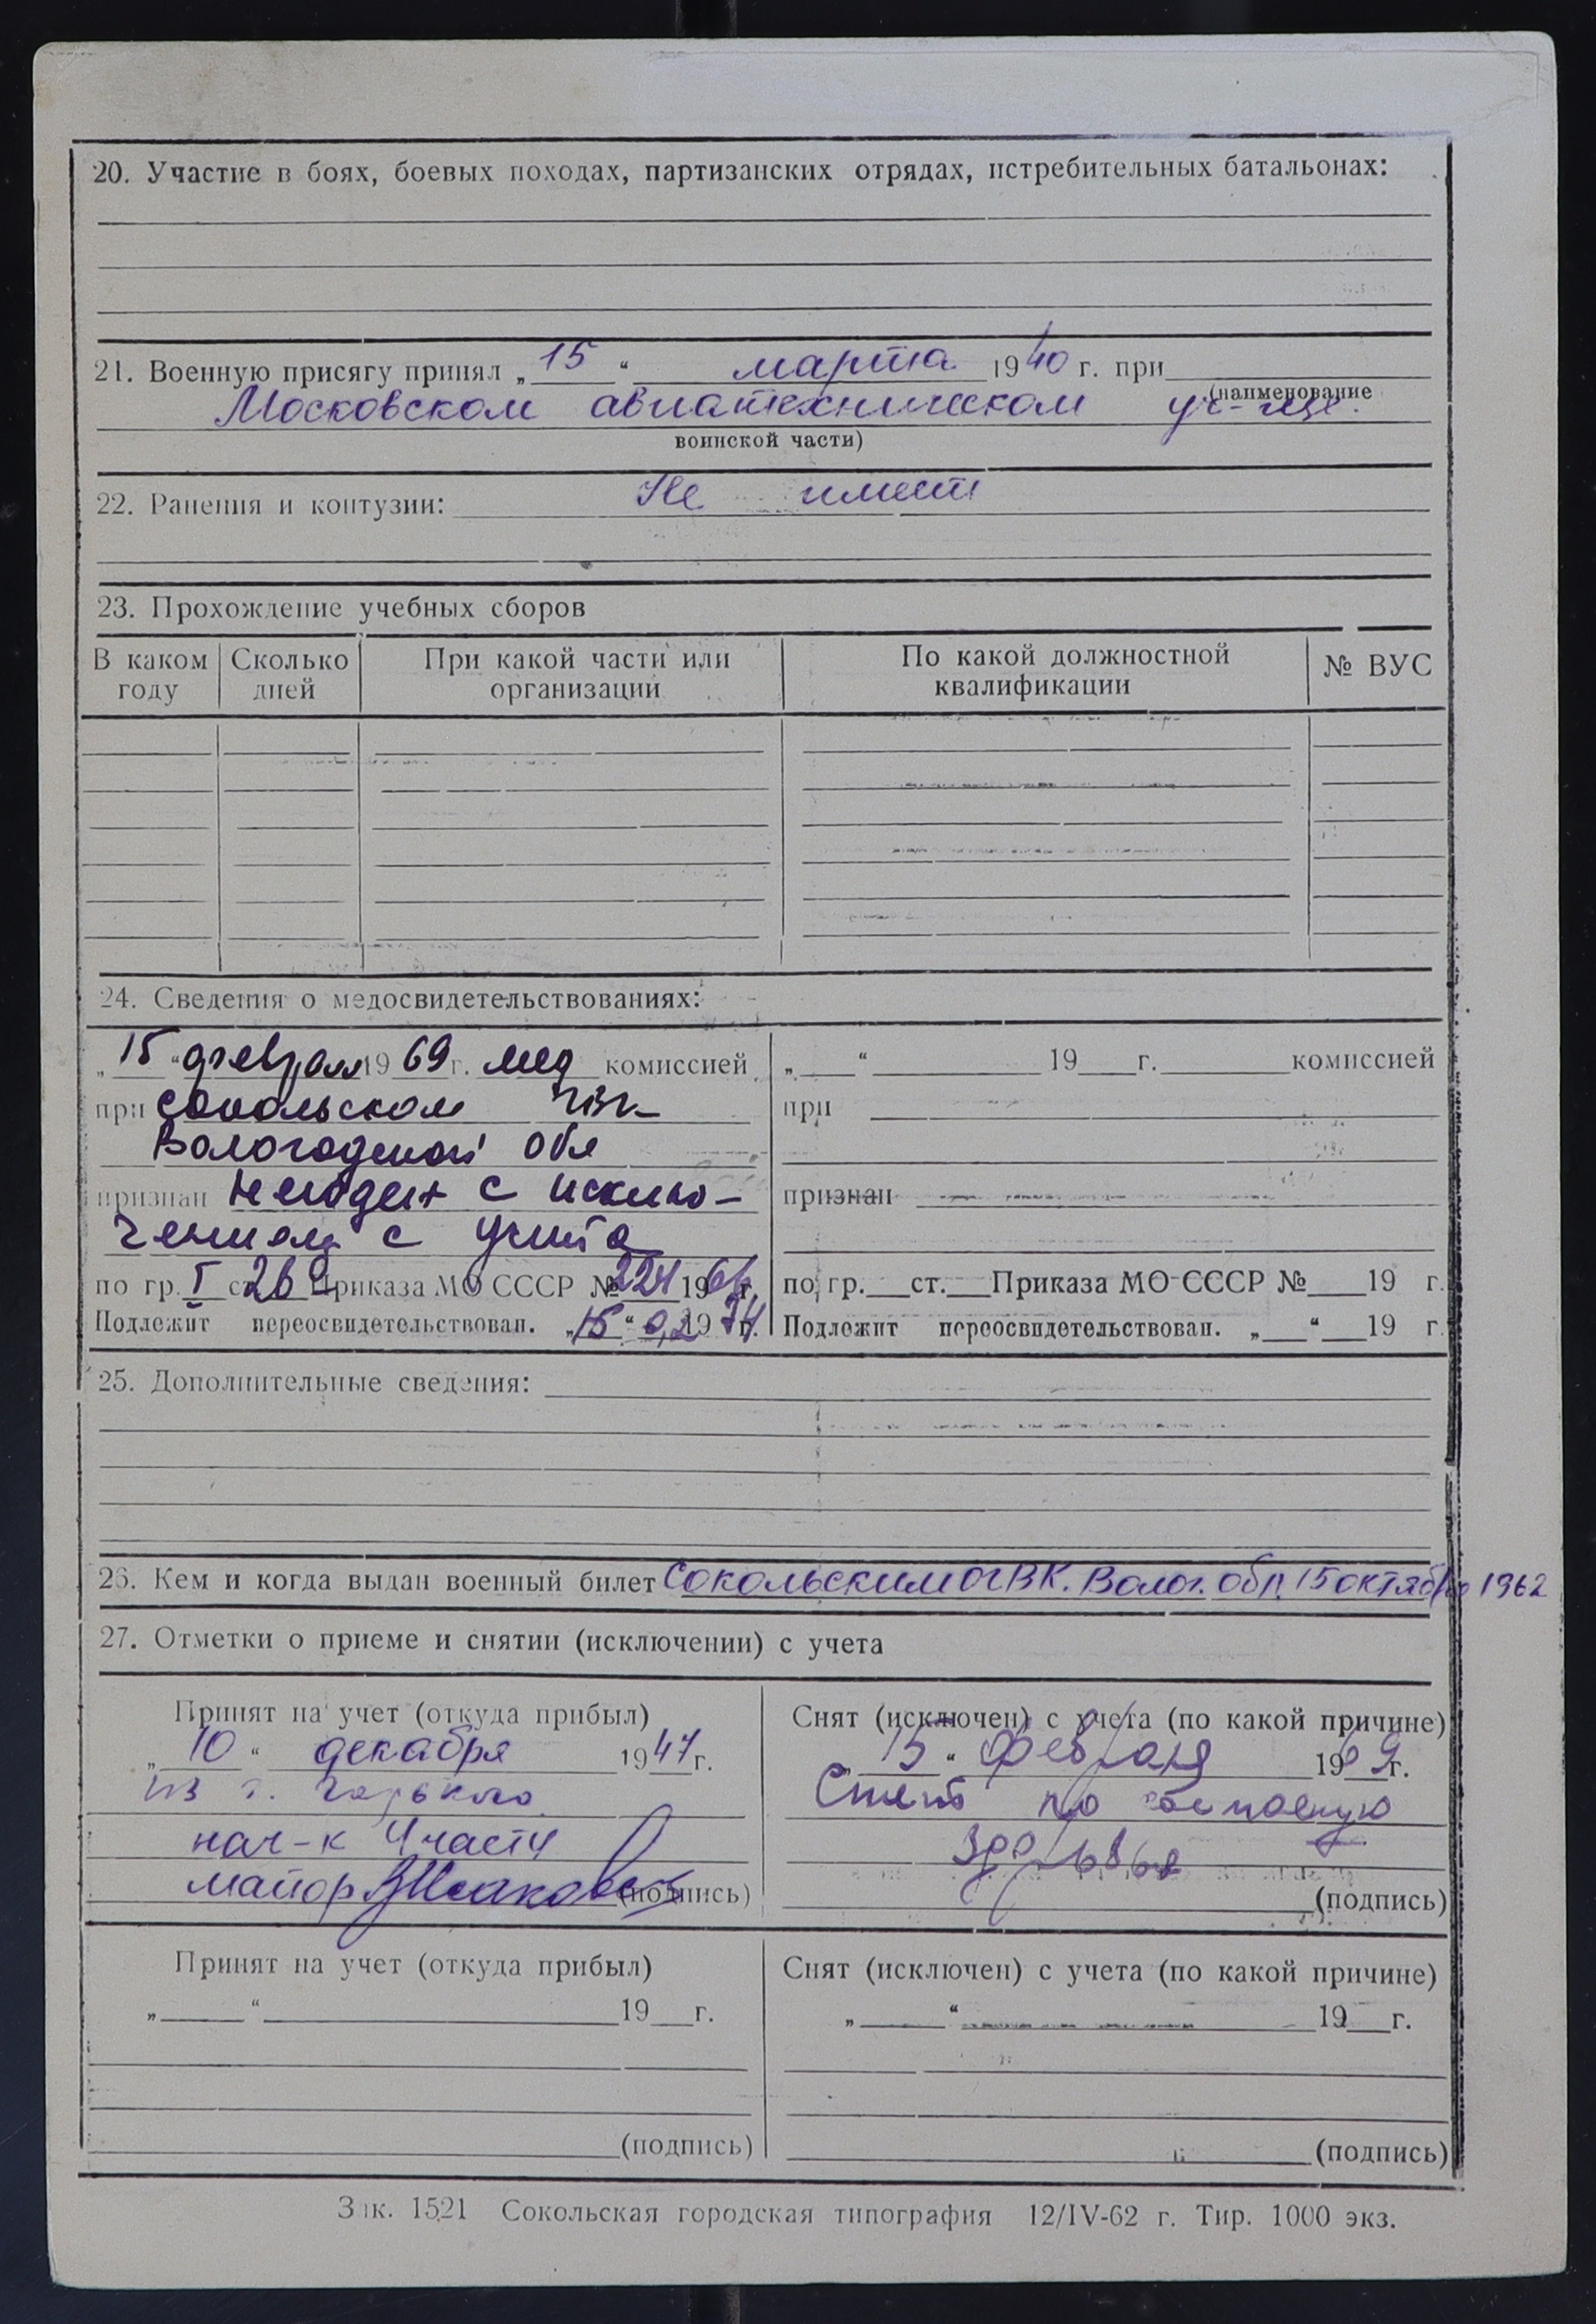 20. Участие в боях, боевых походах, партизанских отрядах, истребительных батальонах:
21. Военную присягу принял „ 15 “ марта 1940 г. при
(наименование
Московском авиатехническом уч-ще.
воинской части)
22. Ранения и контузии: Не имеет
23. Прохождение учебных сборов
В каком году | Сколько дней | При какой части или организации | По какой должностной квалификации | № ВУС
24. Сведения о медосвидетельствованиях:
„ 15 “ февраля 19 69 г. мед комиссией
при Сокольском
Вологодской обл
признан негоден с исклю-
чением с учета
по гр. I ст. 26 Приказа МО СССР № 224 19 66 г.
Подлежит переосвидетельствован. „ 15 “ 02 19 74 г.
„ “ 19 г. комиссией
при
признан
по гр. ст. Приказа МО СССР № 19 г.
Подлежит переосвидетельствован. „ “ 19 г.
25. Дополнительные сведения:
26. Кем и когда выдан военный билет Сокольским ОГВК. Волог. обл. 15 октября 1962
27. Отметки о приеме и снятии (исключении) с учета
Принят на учет (откуда прибыл)
„ 10 “ декабря 19 47 г.
из г. Горького
нач-к 4 части
майор
(подпись)
Снят (исключен) с учета (по какой причине)
„ 15 “ февраля 19 69 г.
Снят по состоянию
здоровья
(подпись)
Принят на учет (откуда прибыл)
„ “ 19 г.
(подпись)
Снят (исключен) с учета (по какой причине)
„ “ 19 г.
(подпись)
Зак. 1521 Сокольская городская типография 12/IV-62 г. Тир. 1000 экз.